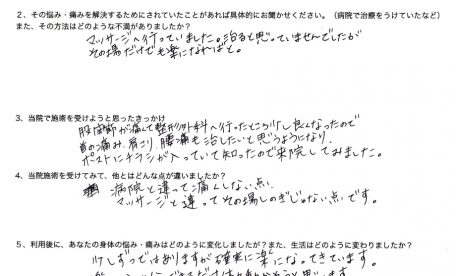 ２、その悩み・痛みを解決するためにされていたことがあれば具体的にお聞かせください。（病院で治療をうけていたなど）
また、その方法はどのような不満がありましたか？
マッサージへ行っていました。治ると思っていませんでしたが
その場だけでも楽になればと。
３、当院で施術を受けようと思ったきっかけ
股関節が痛くて整形外科へ行ったところ少し良くなったので
首の痛み、肩こり、腰痛も治したいと思うようになり、
ポストにチラシが入っていて知ったので来院してみました。
４、当院施術を受けてみて、他とはどんな点が違いましたか？
病院と違って痛くしない点
マッサージと違ってその場しのぎじゃない点です。
５、利用後に、あなたの身体の悩み・痛みはどのように変化しましたか？また、生活はどのように変わりましたか？
少しずつではありますが確実に楽になってきています。